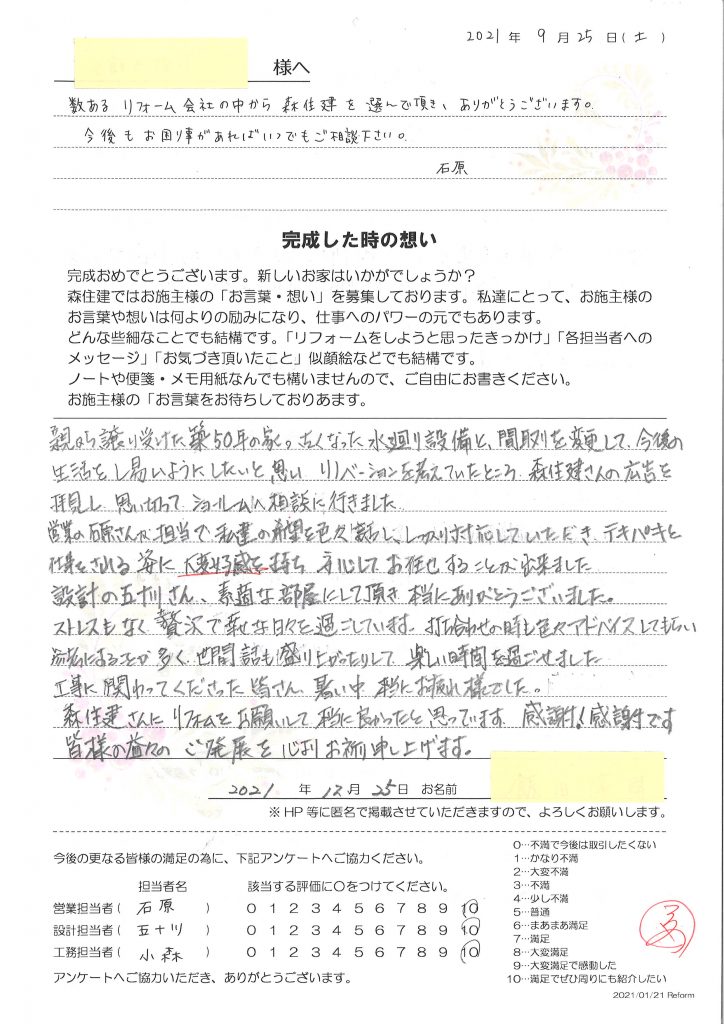 2021 年 9 月 25 日(土)
様へ
数ある リフォーム 会社の中から 森住建 を 選んで頂き、ありがとうございます。
今後も お困り事があればいつでもご相談下さい。
石原
完成した時の想い
完成おめでとうございます。新しいお家はいかがでしょうか?
森住建ではお施主様の「お言葉・想い」を募集しております。私達にとって、お施主様の
お言葉や想いは何よりの励みになり、仕事へのパワーの元でもあります。
どんな些細なことでも結構です。「リフォームをしようと思ったきっかけ」「各担当者への
メッセージ」「お気づき頂いたこと」似顔絵などでも結構です。
ノートや便箋・メモ用紙なんでも構いませんので、ご自由にお書きください。
お施主様の「お言葉をお待ちしておりあます。
親から譲り受けた築50年の家。古くなった水廻り設備と、間取りを変更して、今後の
生活をし易いようにしたいと思い リノベーションを考えていたところ 森住建さんの広告を
拝見し 思い切って ショールームへ相談に行きました
営業の石原さんが担当で 私達の希望を色々話し、しっかり対応していただき テキパキと
仕事をされる姿に 大変好感を持ち 安心してお任せすることが出来ました
設計の五十川さん、素適な部屋にして頂き 本当にありがとうございました。
ストレスもなく贅沢で幸せな日々を過ごしています。打ち合わせの時も色々アドバイスしてもらい
参考にすることが多く、世間話も盛り上がったりして 楽しい時間を過ごせました
工事に関わってくださった皆さん、暑い中 本当にお疲れ様でした。
森住建さんにリフォームをお願いして本当に良かったと思っています 感謝!感謝です
皆様の益々の ご発展を 心よりお祈り申し上げます。
2021 年 12月 25日 お名前
※HP 等に匿名で掲載させていただきますので、よろしくお願いします。
今後の更なる皆様の満足の為に、下記アンケートへご協力ください。
担当者名 該当する評価に○をつけてください。
営業担当者( 石原 ) 0 1 2 3 4 5 6 7 8 9 10
設計担当者( 五十川 ) 0 1 2 3 4 5 6 7 8 9 10
工務担当者( 小森 ) 0 1 2 3 4 5 6 7 8 9 10
アンケートへご協力いただき、ありがとうございます。
0…不満で今後は取引したくない
1…かなり不満
2…大変不満
3…不満
4…少し不満
5…普通
6…まあまあ満足
7…満足
8…大変満足
9…大変満足で感動した
10…満足でぜひ周りにも紹介したい
2021/01/21 Reform